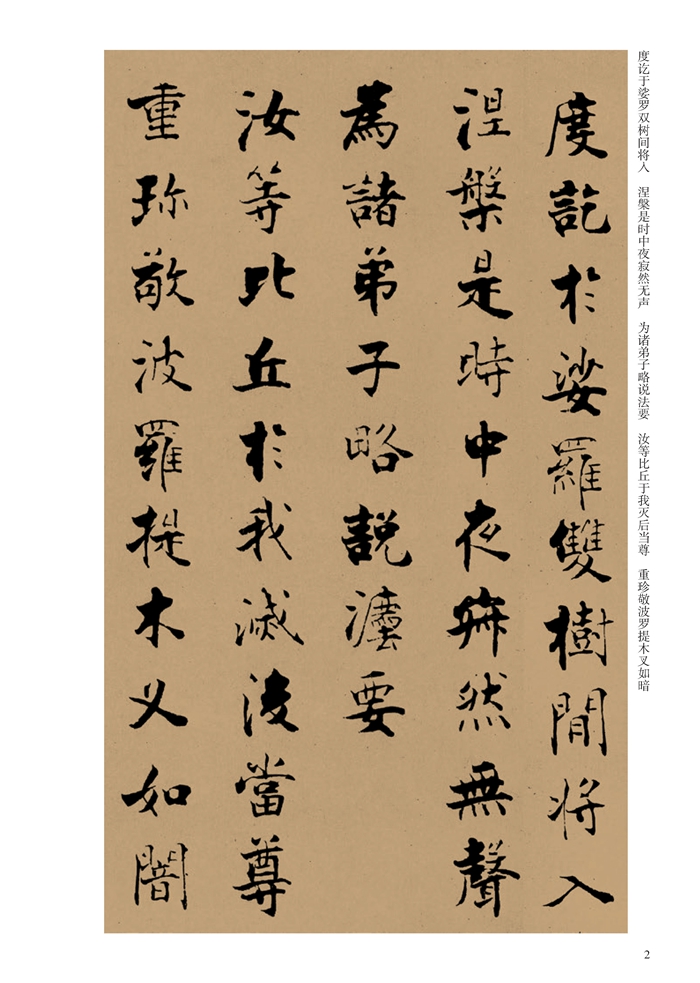 度讫于娑罗双树间将入　涅槃是时中夜寂然无声　为诸弟子略说法要　汝等比丘于我灭后当尊　重珍敬波罗提木叉如暗
度訖於娑羅雙樹間將入
涅槃是時中夜寂然無聲
為諸弟子略說法要
汝等比丘於我滅後當尊
重珎敬波羅提木叉如闇
2